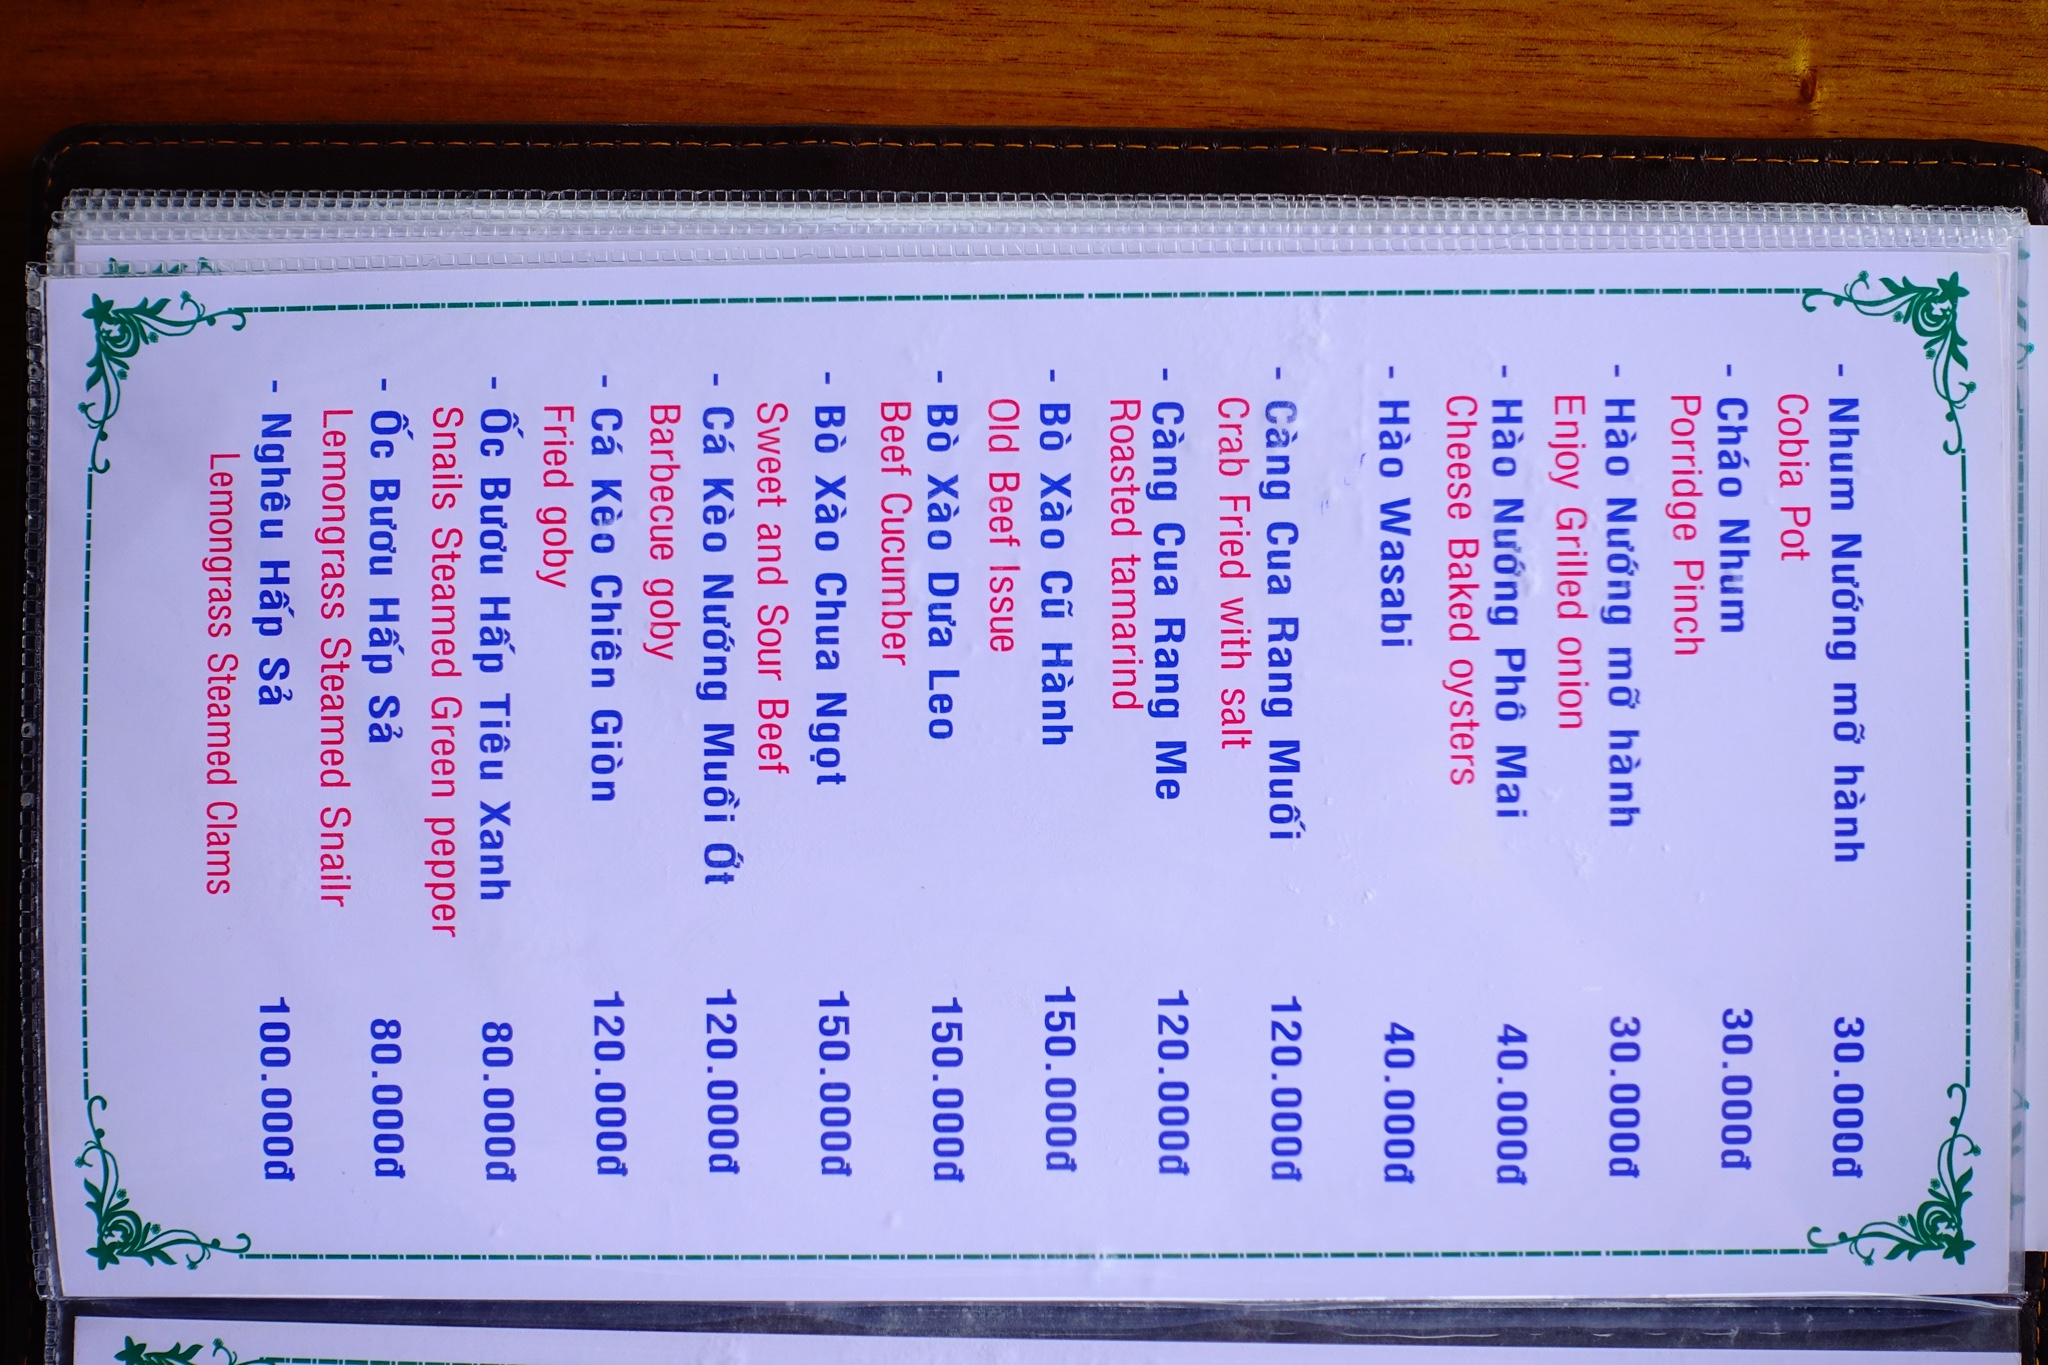 - Nhum Nướng mỡ hành 30.000đ
Cobia Pot
- Cháo Nhum 30.000đ
Porridge Pinch
- Hào Nướng mỡ hành 30.000đ
Enjoy Grilled onion
- Hào Nướng Phô Mai 40.000đ
Cheese Baked oysters
- Hào Wasabi 40.000đ
- Càng Cua Rang Muối 120.000đ
Crab Fried with salt
- Càng Cua Rang Me 120.000đ
Roasted tamarind
- Bò Xào Cũ Hành 150.000đ
Old Beef Issue
- Bò Xào Dưa Leo 150.000đ
Beef Cucumber
- Bò Xào Chua Ngọt 150.000đ
Sweet and Sour Beef
- Cá Kèo Nướng Muồi Ớt 120.000đ
Barbecue goby
- Cá Kèo Chiên Giòn 120.000đ
Fried goby
- Ốc Bươu Hấp Tiêu Xanh 80.000đ
Snails Steamed Green pepper
- Ốc Bươu Hấp Sả 80.000đ
Lemongrass Steamed Snailr
- Nghêu Hấp Sả 100.000đ
Lemongrass Steamed Clams